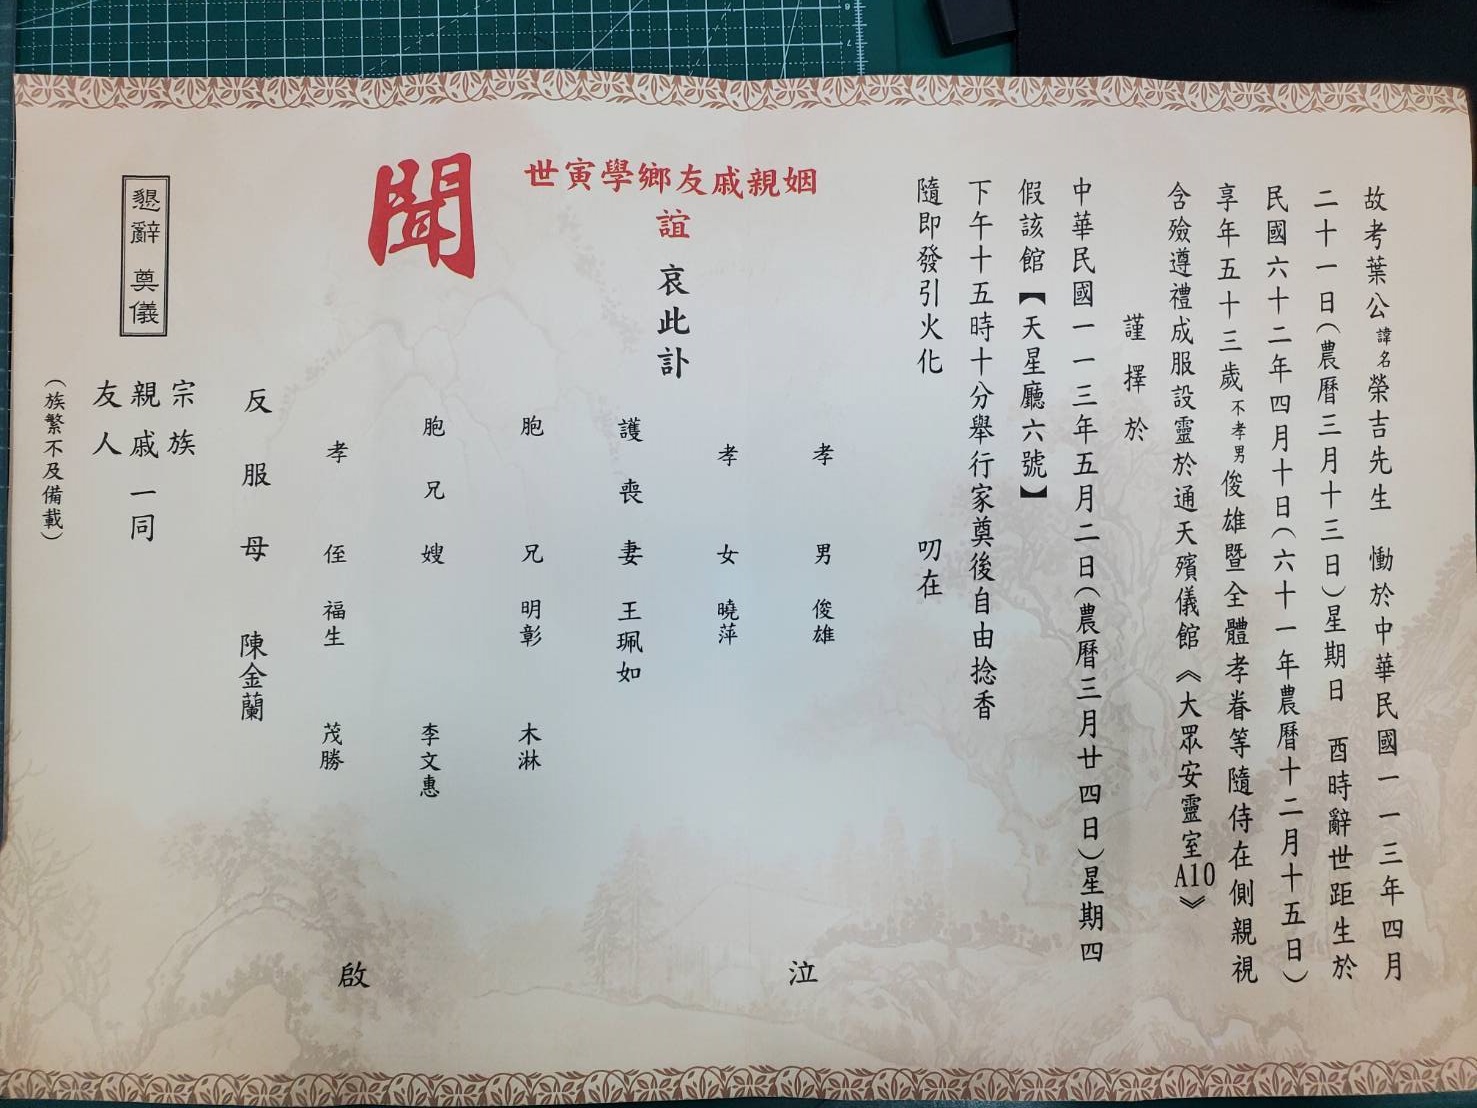 故考葉公諱名榮吉先生　慟於中華民國一一三年四月
二十一日（農曆三月十三日）星期日　酉時辭世距生於
民國六十二年四月十日（六十一年農曆十二月十五日）
享年五十三歲不孝男俊雄暨全體孝眷等隨侍在側親視
含殮遵禮成服設靈於通天殯儀館《大眾安靈室A10》
謹擇於
中華民國一一三年五月二日（農曆三月廿四日）星期四
假該館【天星廳六號】
下午十五時十分舉行家奠後自由捻香
隨即發引火化　叨在
姻親戚友鄉學寅世
誼　哀此訃
聞
孝男　俊雄
孝女　曉萍
護喪妻　王珮如
胞兄　明彰　木淋
胞兄嫂　李文惠
孝侄　福生　茂勝
反服母　陳金蘭
泣
啟
宗族
親戚一同
友人
（族繁不及備載）
懇辭　奠儀